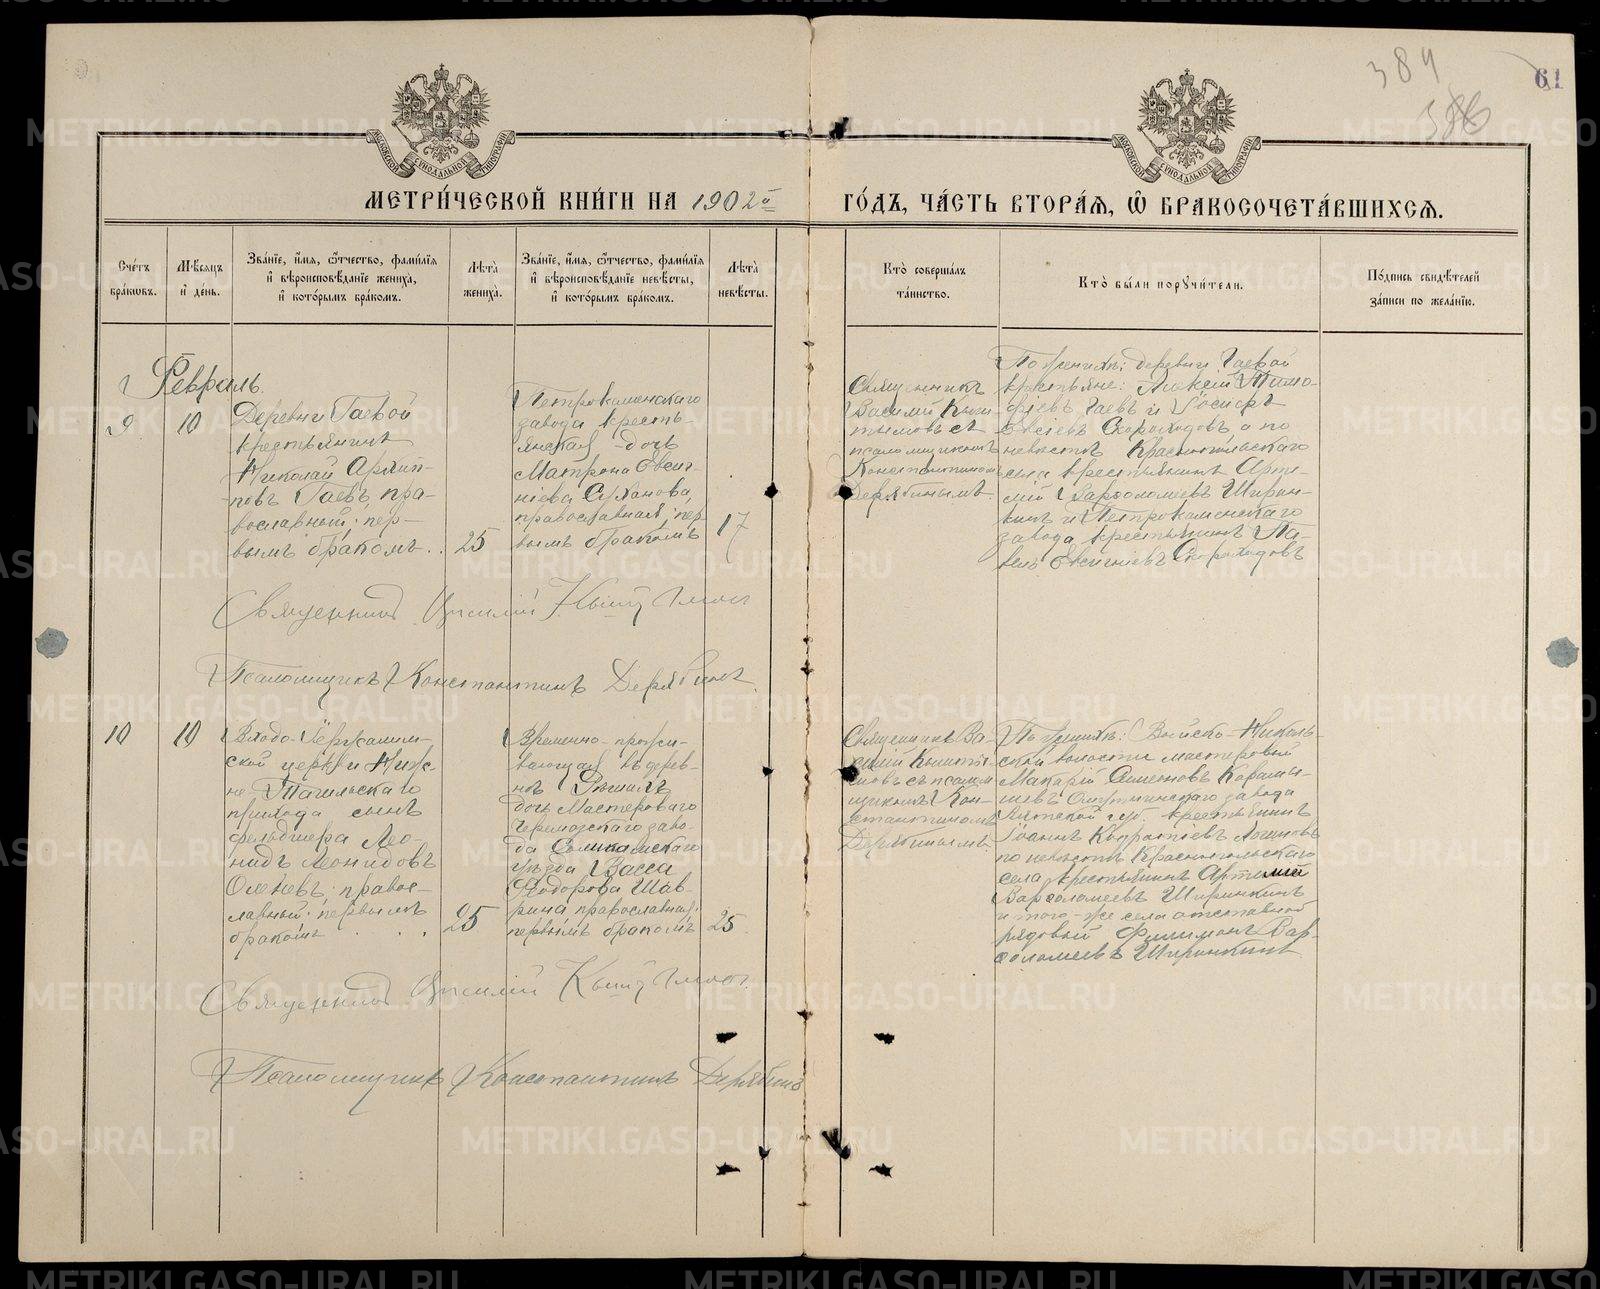 384
386
61
МОСКОВСКОЙ СѴНОДАЛЬНОЙ ТИПОГРАФІИ
МОСКОВСКОЙ СѴНОДАЛЬНОЙ ТИПОГРАФІИ
МЕТРИ́ЧЕСКОЙ КНИ́ГИ НА 1902й ГО́ДЪ, ЧА́СТЬ ВТОРА́Я, Ѿ БРАКОСОЧЕТА́ВШИХСЯ.
Сче́тъ бра́ковъ.
Мѣ́сяцъ и҆ де́нь.
Зва́нїе, и҆́мя, ѻ҆́тчество, фами́лїя
и҆ вѣроисповѣ́данїе жениха̀,
и҆ кото́рымъ бра́комъ.
Лѣта̀ жениха̀.
Зва́нїе, и҆́мя, ѻ҆́тчество, фами́лїя
и҆ вѣроисповѣ́данїе невѣ́сты,
и҆ кото́рымъ бра́комъ.
Лѣта̀ невѣ́сты.
Кто̀ соверша́лъ та́инство.
Кто̀ бы́ли поручи́тели.
По́дпись свидѣ́телей за́писи по жела́нїю.
Февраль.
9
10
Деревни Гаевой
крестьянинъ
Николай Архип-
повъ Гаевъ, пра-
вославный; пер-
вымъ бракомъ.
25
Петрокаменскаго
завода кресть-
янская дочь
Матрона Евсиг-
ніева
православная; пер
вымъ бракомъ
17
Священникъ
Василій Кыш-
тымовъ съ
псаломщикомъ
Константиномъ
Дерябинымъ.
По женихѣ: деревни Гаевой
крестьяне: Алексій Тимо-
фіевъ Гаевъ и Іосифъ
Евсіевъ Скороходовъ а по
невѣстѣ Краснопольскаго
села крестьянинъ Арте-
мій Варѳоломіевъ Ширин-
кинъ и Петрокаменскаго
завода крестьянинъ Па-
велъ Евсигніевъ Скороходовъ
Священникъ Василій Кыштымовъ
Псаломщикъ Константинъ Дерябинъ.
10
10
Входо-Іерусалим-
ской церкви Ниж-
не-Тагильскаго
прихода сынъ
фельдшера Лео-
нидъ Леонидовъ
Оленевъ; правос-
лавный; первымъ
бракомъ
25
Временно-прожи-
вающая въ дерев-
нѣ
дочь Мастероваго
Чермозскаго заво-
да Соликамскаго
уѣзда Васса
Ѳеодорова Шав-
рина православная;
первымъ бракомъ
25.
Священникъ Ва-
силій Кышты-
мовъ съ псалом
щикомъ Кон-
стантиномъ
Дерябинымъ.
По женихѣ: Выйско-Николь-
ской волости мастеровый
Макарій Симеоновъ
завода
Вятской губ. крестьянинъ
Іоаннъ Логиновъ
по невѣстѣ Краснопольскаго
села крестьянинъ Артемій
Варѳоломеевъ Ширинкинъ
и того-же села отставной
рядовый Филимонъ Вар-
ѳоломеевъ Ширинкинъ
Священникъ Василій Кыштымовъ.
Псаломщикъ Константинъ Дерябинъ
METRIKI.GASO-URAL.RU